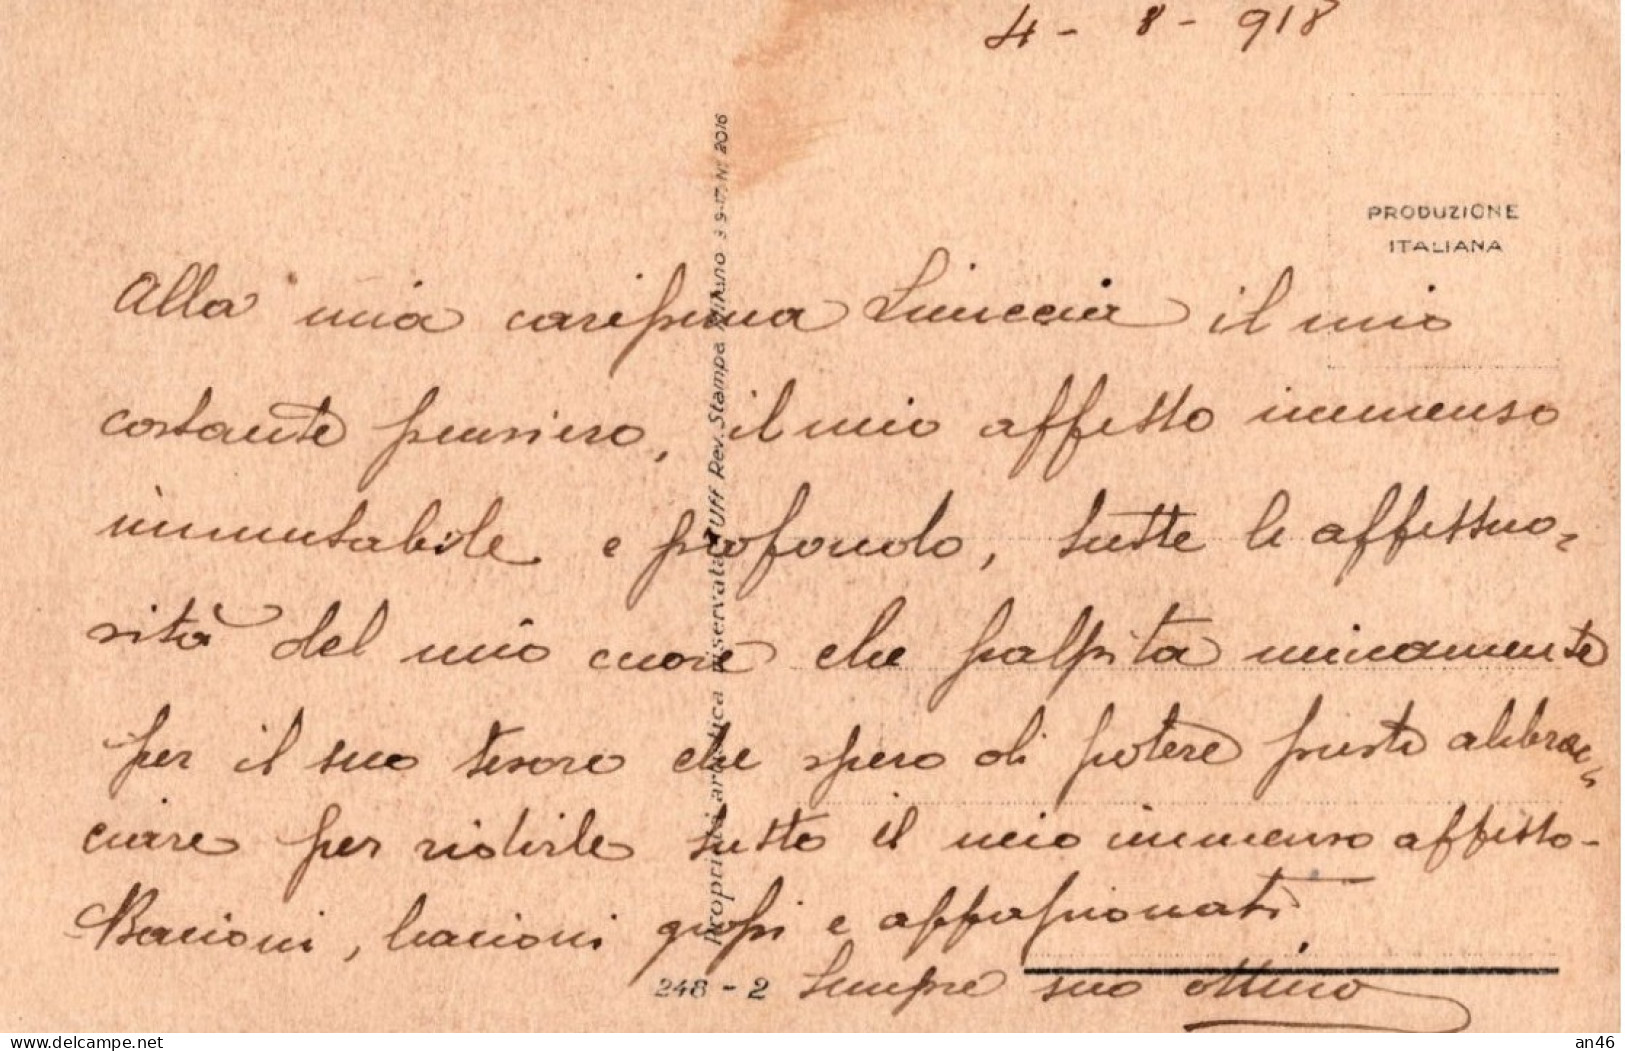 4 - 8 - 918
PRODUZIONE
ITALIANA
Alla mia carissima il mio
costante pensiero, il mio affetto immenso
immutabile e profondo, tutte le affettuo-
sità del mio cuore che palpita
per il suo tesoro che spero di potere presto abbrac-
ciare per ridirle tutto il mio immenso affetto -
Bacioni, bacioni grossi e appassionati
Sempre suo
Proprietà artistica riservata Uff Rev. Stampa Milano 3 9-17 N° 2016
248 - 2
www.delcampe.net
an46